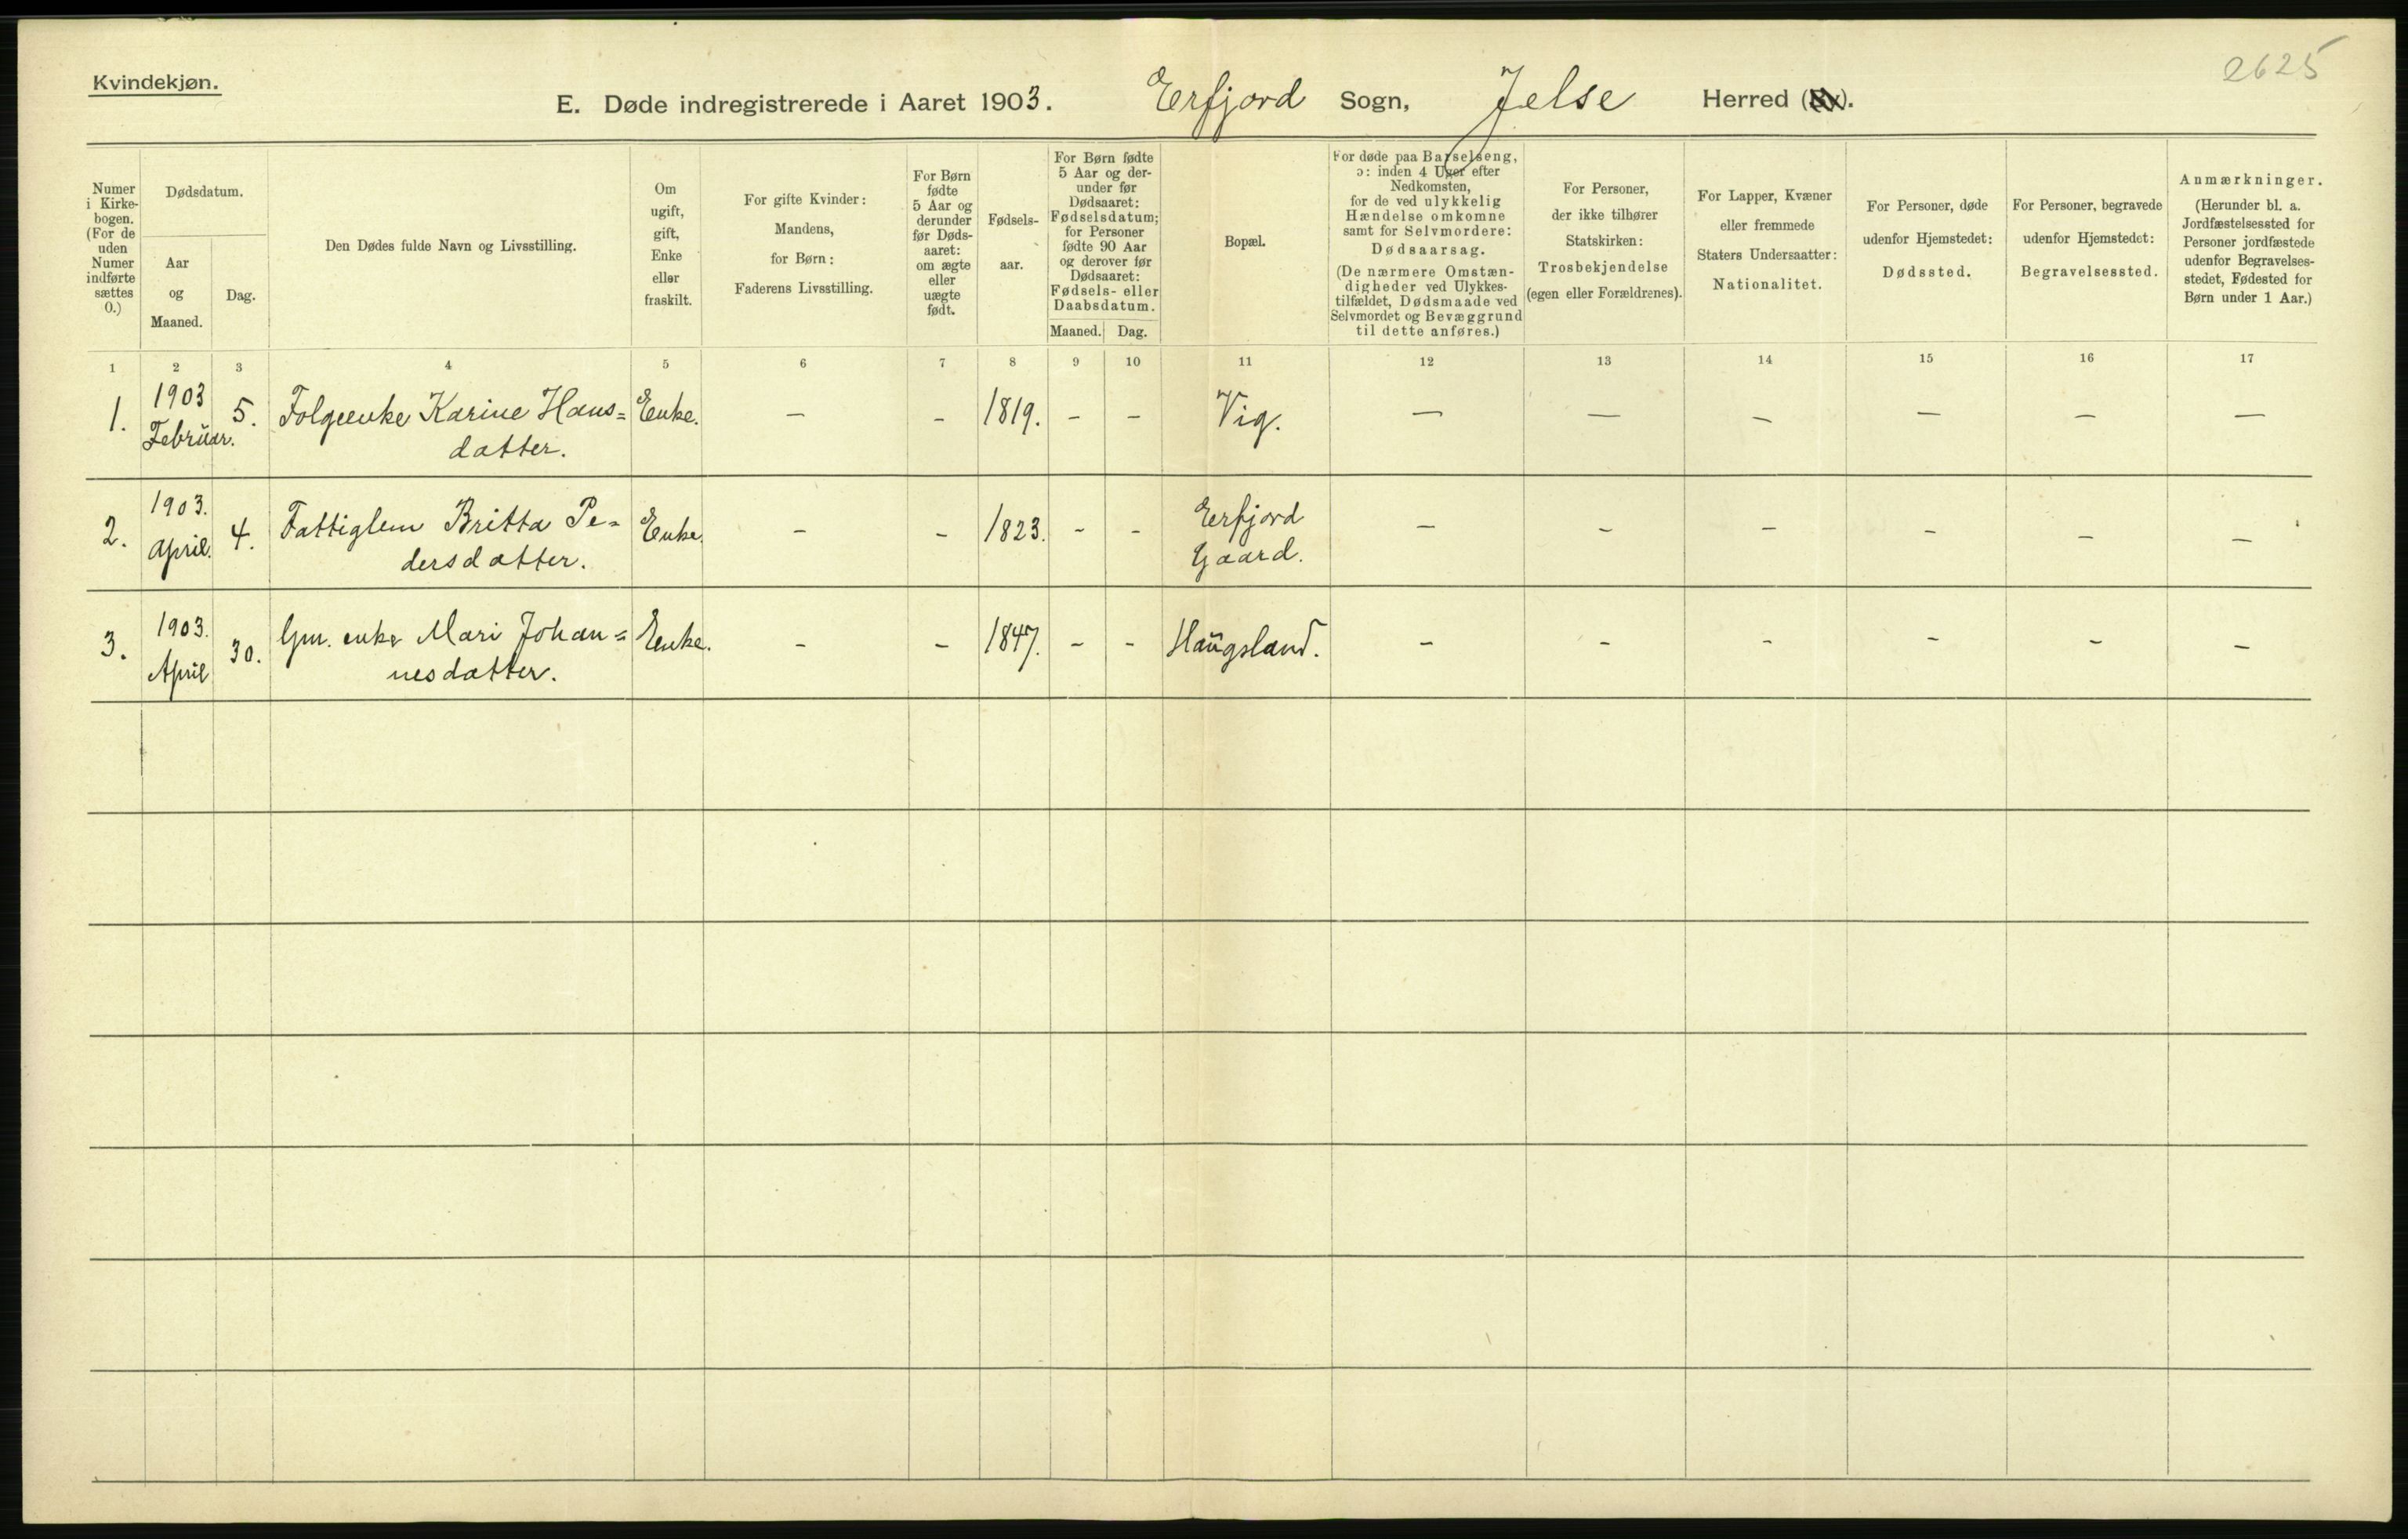 Kvindekjøn.
2625
E. Døde indregistrerede i Aaret 1903. Erfjord Sogn, Jelse Herred (By).
Numer
i Kirke-
bogen.
(For de
uden
Numer
indførte
sættes
0.)
Dødsdatum.
Aar
og
Maaned.
Dag.
Den Dødes fulde Navn og Livsstilling.
Om
ugift,
gift,
Enke
eller
fraskilt.
For gifte Kvinder:
Mandens,
for Børn:
Faderens Livsstilling.
For Børn
fødte
5 Aar og
derunder
før Døds-
aaret:
om ægte
eller
uægte
født.
Fødsels-
aar.
For Børn fødte
5 Aar og der-
under før
Dødsaaret:
Fødselsdatum;
for Personer
fødte 90 Aar
og derover før
Dødsaaret:
Fødsels- eller
Daabsdatum.
Maaned. Dag.
Bopæl.
For døde paa Barselseng,
ɔ: inden 4 Uger efter
Nedkomsten,
for de ved ulykkelig
Hændelse omkomne
samt for Selvmordere:
Dødsaarsag.
(De nærmere Omstæn-
digheder ved Ulykkes-
tilfældet, Dødsmaade ved
Selvmordet og Bevæggrund
til dette anføres.)
For Personer,
der ikke tilhører
Statskirken:
Trosbekjendelse
(egen eller Forældrenes).
For Lapper, Kvæner
eller fremmede
Staters Undersaatter:
Nationalitet.
For Personer, døde
udenfor Hjemstedet:
Dødssted.
For Personer, begravede
udenfor Hjemstedet:
Begravelsessted.
Anmærkninger.
(Herunder bl. a.
Jordfæstelsessted for
Personer jordfæstede
udenfor Begravelses-
stedet, Fødested for
Børn under 1 Aar.)
1 2 3 4 5 6 7 8 9 10 11 12 13 14 15 16 17
1. 1903 Februar. 5. Folgeenke Karine Hans= Enke. — - 1819. - - Vig. — — — — — —
datter.
2. 1903. April. 4. Fattiglem Britta Pe= Enke. - - 1823. - - Erfjord - - - - - -
dersdatter. Gaard.
3. 1903. April 30. Gm. enke Mari Johan= Enke. - - 1847. - - Haugsland. - - - - - -
nesdatter.